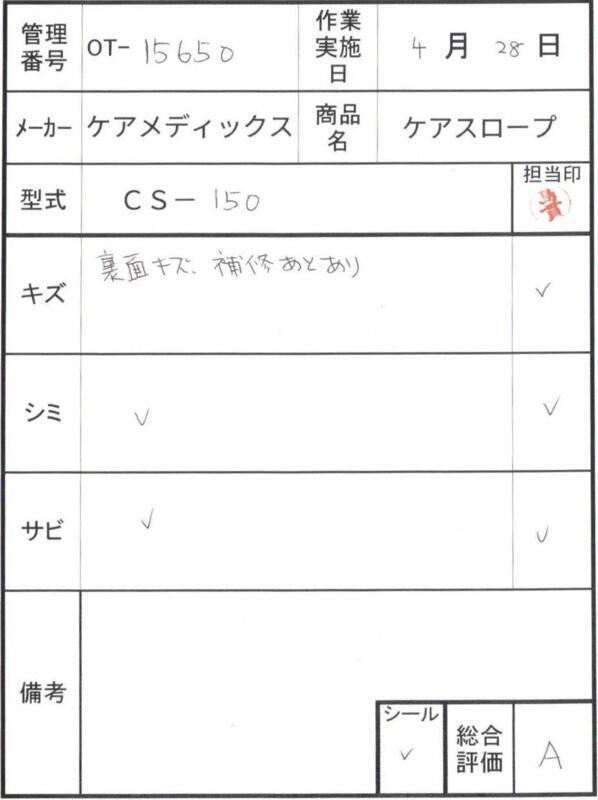 管理番号 OT- 15650 作業実施日 4月28日
メーカー ケアメディックス 商品名 ケアスロープ
型式 CS-150 担当印
キズ 裏面キズ、補修あとあり ✓
シミ ✓ ✓
サビ ✓ ✓
備考
シール ✓ 総合評価 A